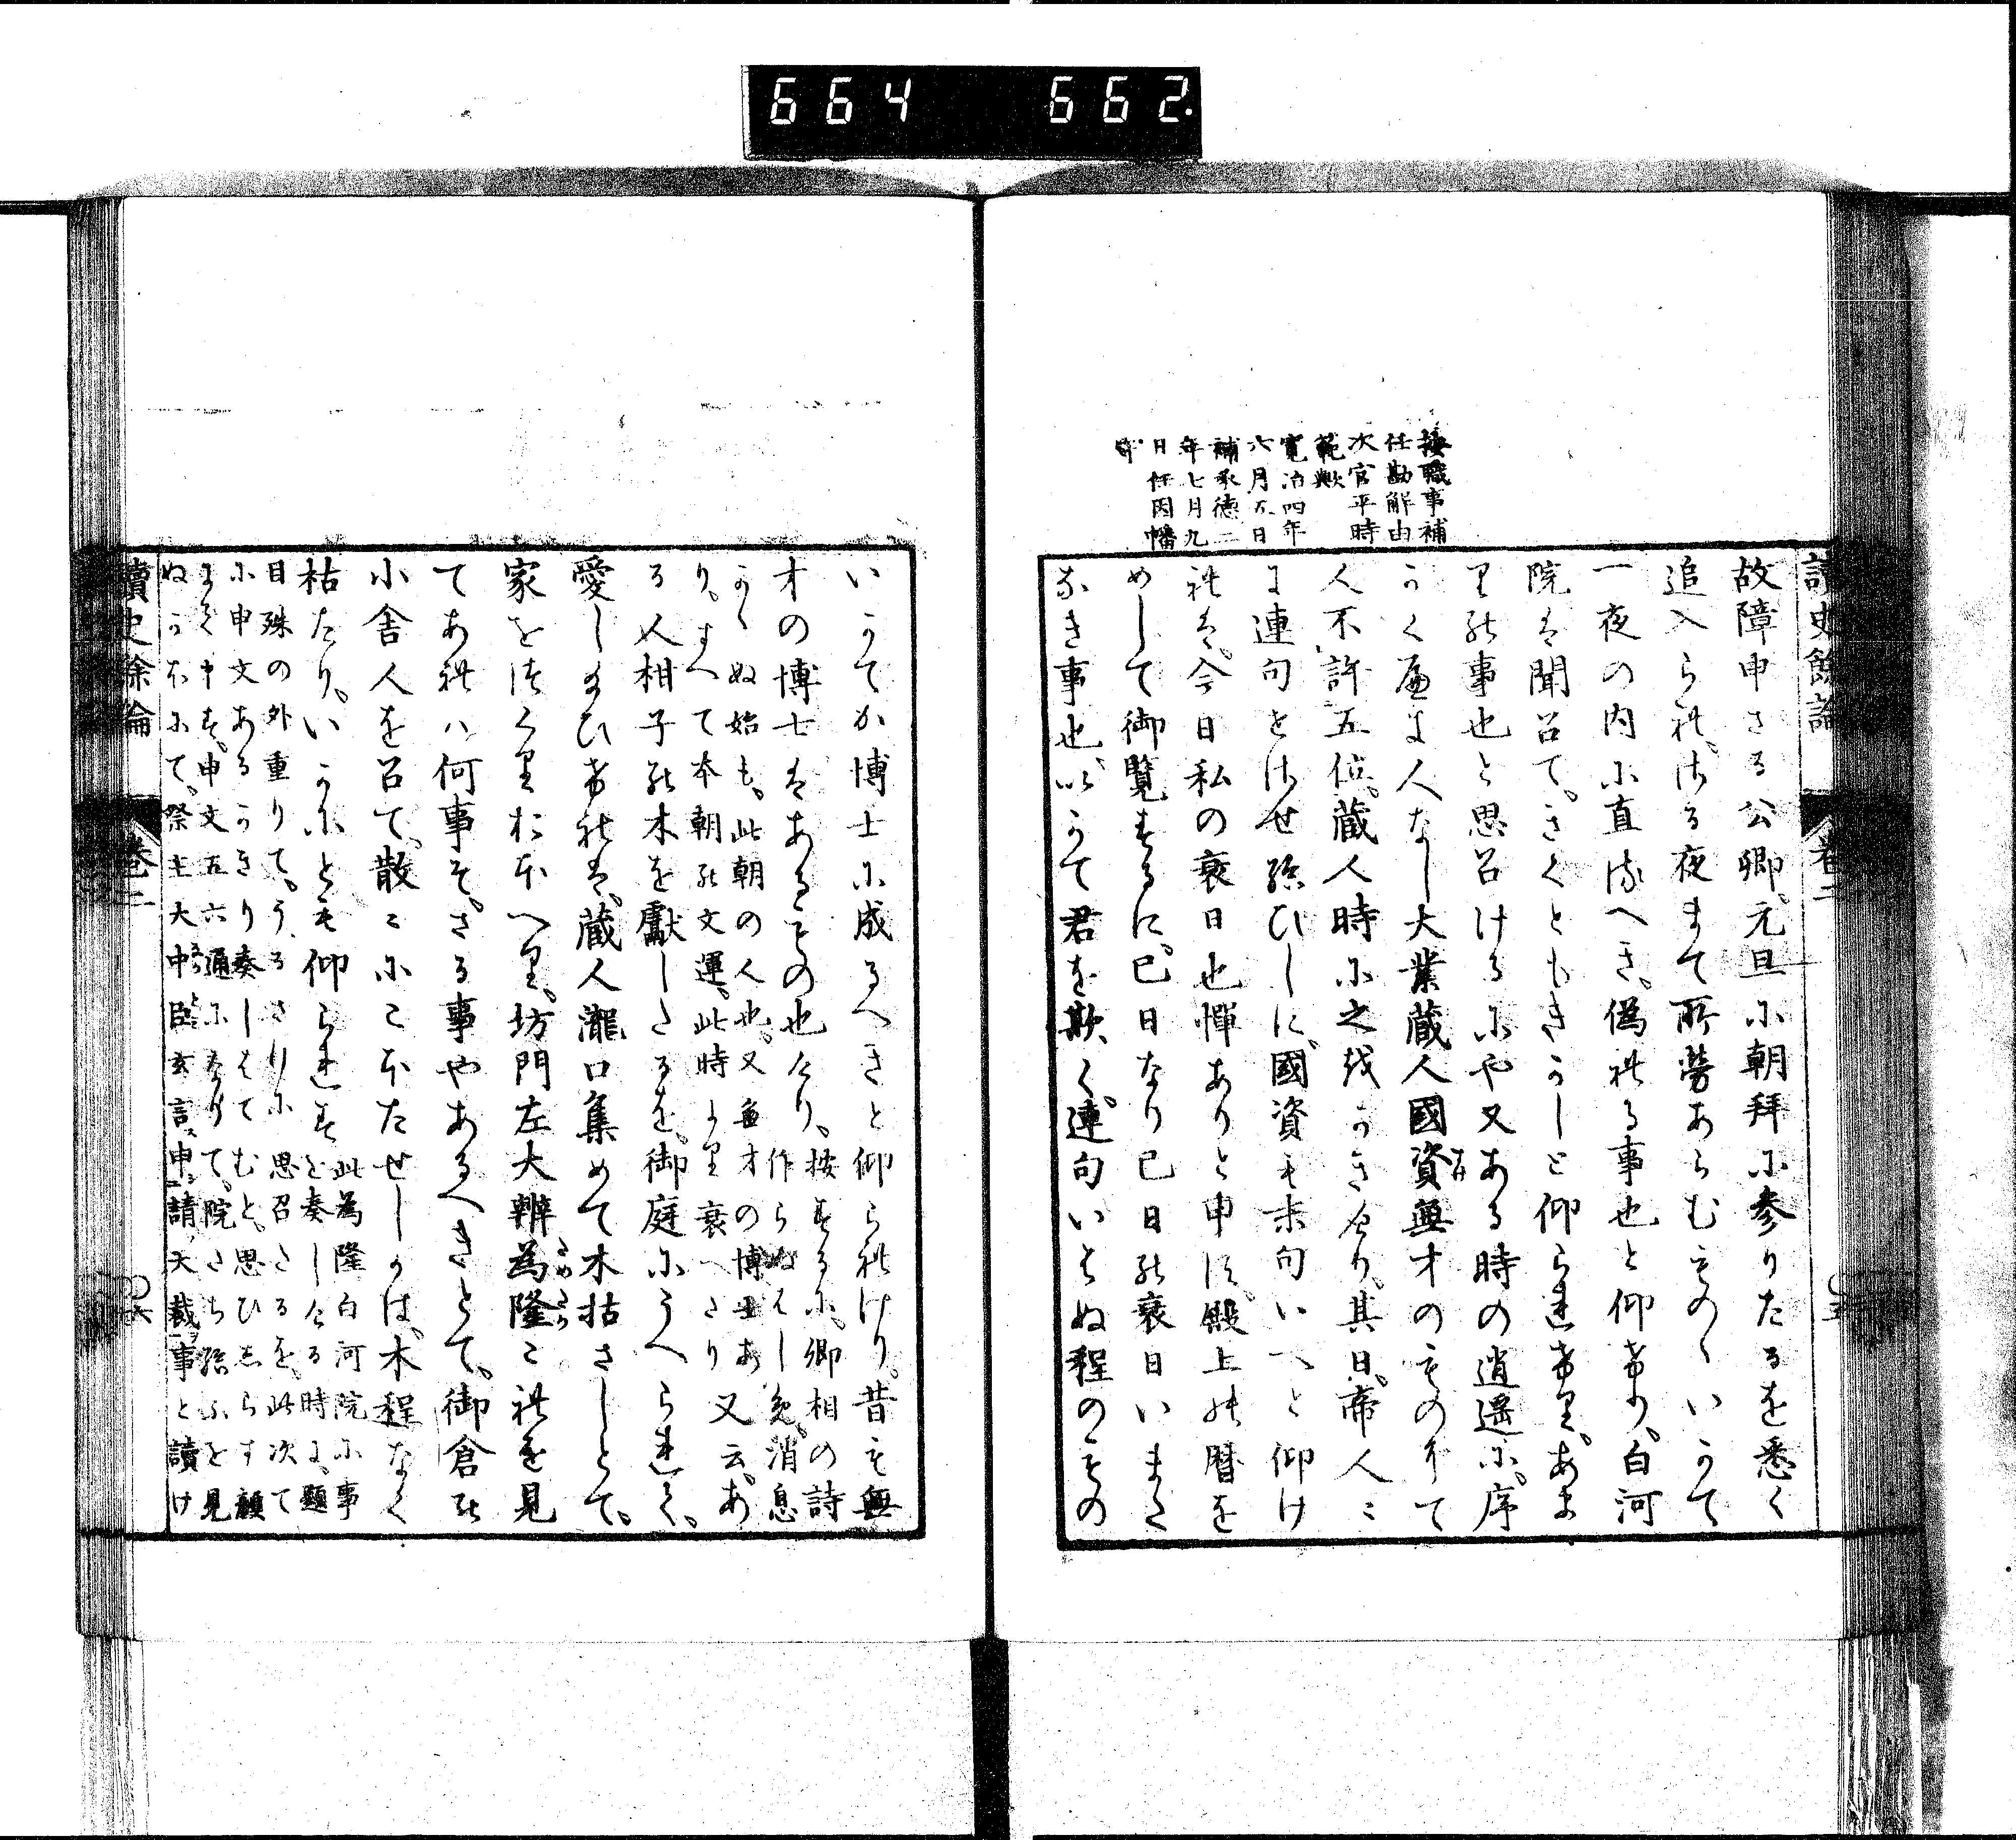 664 662.
讀史餘論 卷二
按職事補
任勘解由
次官平時
範歟
寛治四年
六月五日
補承徳二
年七月九
日任因幡
守
故障申さる公卿、元旦に朝拝に参りたるを悉く
追入られ、ほる夜まて所勞あらむものゝいかて
一夜の内に直るへき、偽れる事也と仰けり、白河
院は聞召て、さくともきかしと仰られけり、あま
り能事也と思召けるにや又ある時の逍遥に、序
かく廉に人なし大業蔵人國資無才のものにて
人不許五位、蔵人時に之
連句せさせ給ひしに、國資も末句いへと仰け
れは、今日私の衰日也憚ありと申に、殿上の暦を
めして御覧するに、已日なり已日の衰日いまた
なき事也、いかて君を欺く、連句いはぬ程のもの
いかてか博士に成るへきと仰られけり、昔も無
才の博士はあるもの也けり、按するに、卿相の詩
作らぬはし免、消息
かゝぬ始も、此朝の人也、又無才の博士あ
り、すへて本朝の文運、此時より衰へたり又云、あ
る人柑子の木を獻したるを、御庭にうへられて、
愛し給ひけれは、蔵人瀧口集めて木枯さしとて、
家をつくりおほへり、坊門左大辨為隆これを見
てあれハ何事そ、さる事やあるへきとて、御倉の
小舎人を召て、散々にこほたせしかは、木程なく
枯たり、いかにとも仰られす 此為隆白河院に事
を奏しける時に、題
目殊の外重りて、うるさりに思召たるを、此次て
に申文あるかきり奏しはてむと、思ひしらす顔
まて申す、申文五六通になりて、院たち給ふを見
ぬかほにて、祭主大中臣玄言申請天裁事と讀け
讀史餘論 卷二